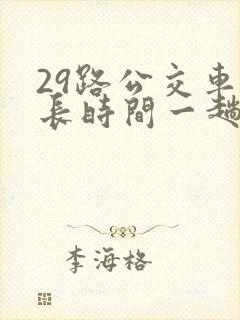 29路公交車
長時間一趟
李海格